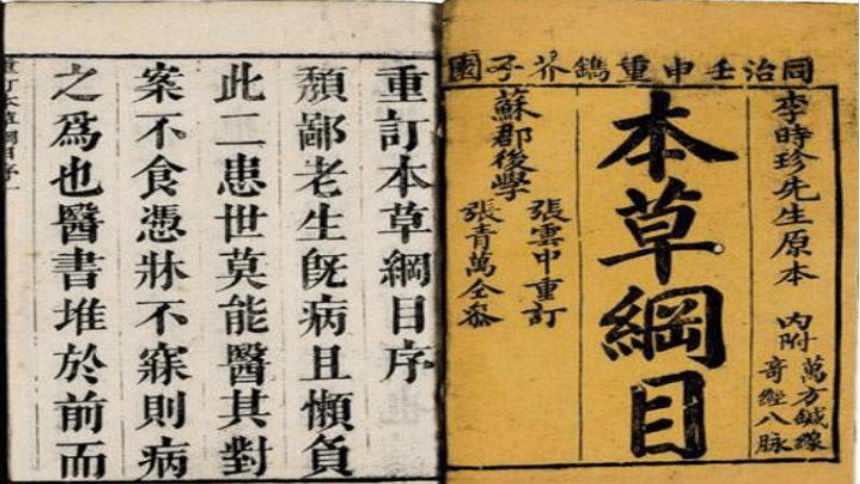 同治壬申重鐫芥子園
李時珍先生原本
內附
萬方鍼線
奇經八脉
本草綱目
張雲中重訂
張青萬仝叅
蘇郡後學
重訂本草綱目序
頽鄙老生旣病且懶負
此二患世莫能醫其對
案不食憑牀不寐則病
之爲也醫書堆於前而